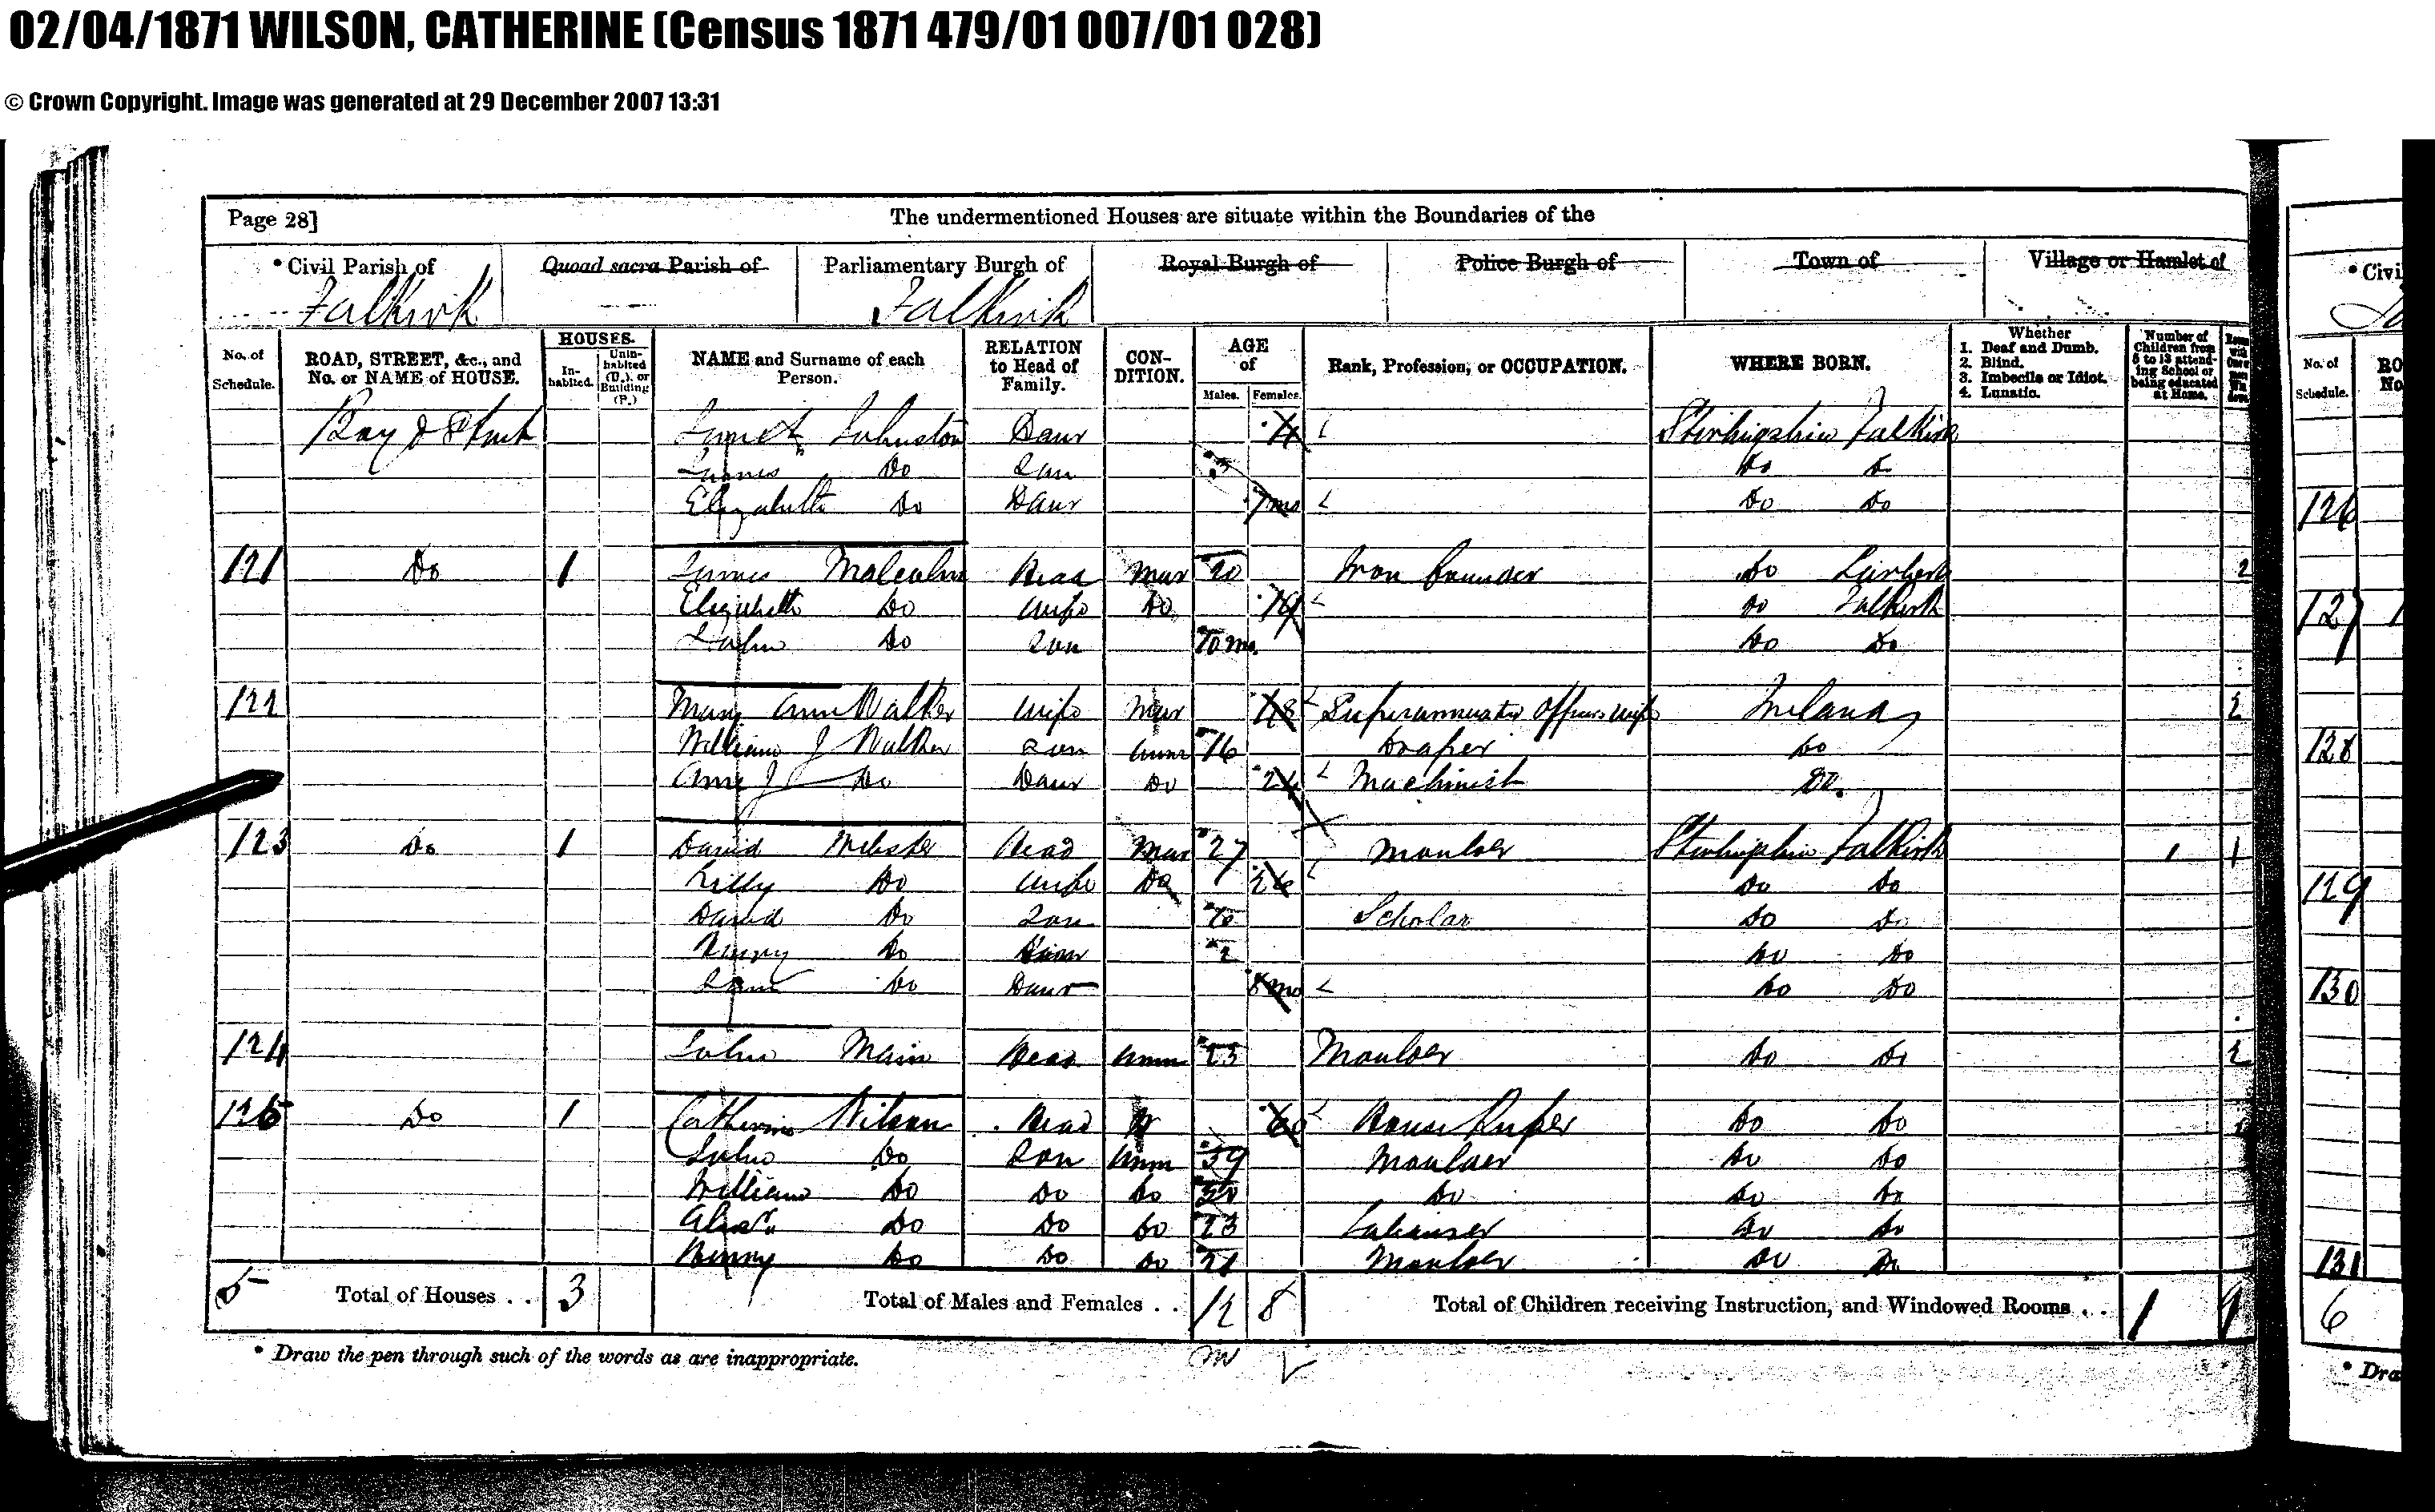 02/04/1871 WILSON, CATHERINE (Census 1871 479/01 007/01 028)
© Crown Copyright. Image was generated at 29 December 2007 13:31
Page 28] The undermentioned Houses are situate within the Boundaries of the
* Civil Parish of Quoad sacra Parish of Parliamentary Burgh of Royal Burgh of Police Burgh of Town of Village or Hamlet of
Falkirk Falkirk
No. of Schedule. ROAD, STREET, &c., and No. or NAME of HOUSE. HOUSES. Inhabited. Uninhabited (U.), or Building (B.) NAME and Surname of each Person. RELATION to Head of Family. CONDITION. AGE of Males. Females. Rank, Profession, or OCCUPATION. WHERE BORN. Whether 1. Deaf and Dumb. 2. Blind. 3. Imbecile or Idiot. 4. Lunatic. Number of Children from 5 to 13 attending School or being educated at Home.
Janet Johnston Daur 4 Stirlingshire Falkirk
James Do Son 3 Do Do
Elizabeth Do Daur 7 mo Do Do
121 Do 1 James Malcolm Head Mar 20 Iron founder Do Larbert 2
Elizabeth Do Wife Do 19 Do Falkirk
John Do Son 10 mo. Do Do
122 Mary Ann Walker Wife Mar 48 Superannuated Officers wife Ireland 2
William J Walker Son Unm 16 Draper Do
Ann J Do Daur Do Machinist Do.
123 Do 1 David Webster Head Mar 27 Moulder Stirlingshire Falkirk 1 1
Lilly Do Wife Do 26 Do Do
David Do Son 6 Scholar Do Do
Henry Do 2 Do Do
Do Daur 8 mo Do Do
124 John Main Head Unm 23 Moulder Do Do 2
125 Do 1 Catherine Wilson Head W 60 House Keeper Do Do
John Do Son Unm 39 Moulder Do Do
William Do Do Do Do Do Do
Alexr. Do Do Do 23 Labourer Do Do
Henry Do Do Do 21 Moulder Do Do
5 Total of Houses . . 3 Total of Males and Females . . 12 8 Total of Children receiving Instruction, and Windowed Rooms . . 1 9
* Draw the pen through such of the words as are inappropriate.
* Civi
No. of Schedule. RO No
126
127
128
129
130
131
6
* Dra